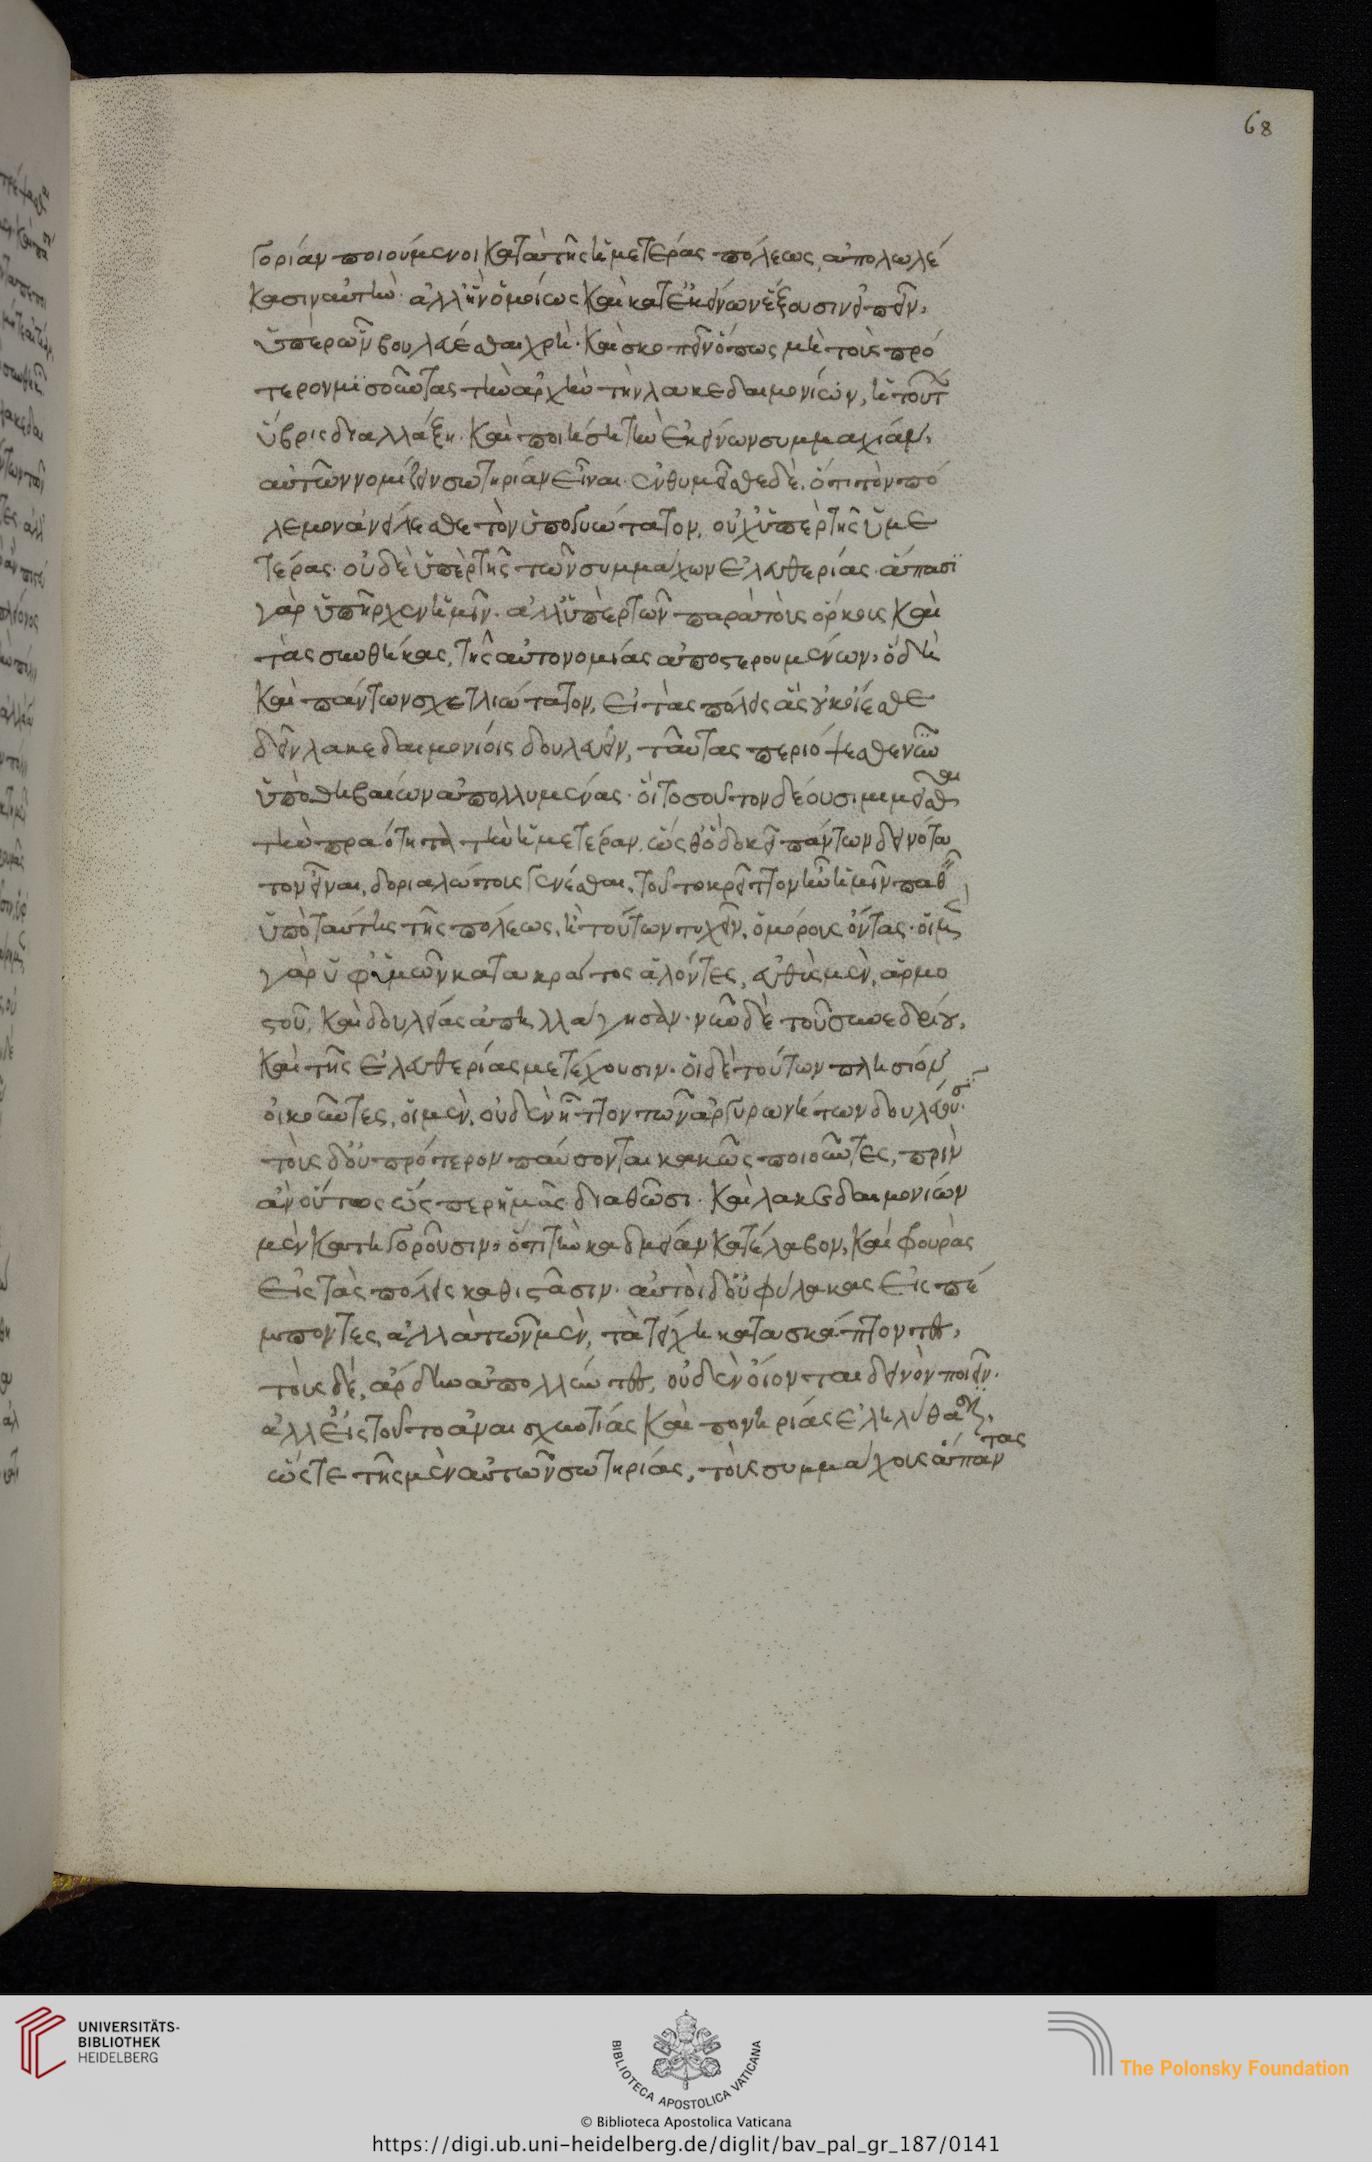 68
γορίαν ποιούμενοι κατὰ τῆς ἡμετέρας πόλεως, ἀπολωλέ
κασιν αὐτήν· ἀλλ' ἢν ὁμοίως καὶ κατ' ἐκείνων ἕξουσιν εἰπεῖν,
ὑπὲρ ὧν βουλεύεσθαι χρή· καὶ σκοπεῖν ὅπως μὴ τοὺς πρό
τερον μισοῦντας τὴν ἀρχὴν τὴν λακεδαιμονίων, ἡ τούτων
ὕβρις διαλλάξῃ· καὶ ποιήσῃ τὴν ἐκείνων συμμαχίαν,
αὑτῶν νομίζειν σωτηρίαν εἶναι· ἐνθυμεῖσθε δὲ, ὅτι τὸν πό
λεμον ἀνείλεσθε τὸν ὑπογυώτατον, οὐχ ὑπὲρ τῆς ὑμε
τέρας· οὐδὲ ὑπὲρ τῆς τῶν συμμάχων ἐλευθερίας· ἅπασι
γὰρ ὑπῆρχεν ἡμῖν· ἀλλ' ὑπὲρ τῶν παρὰ τοὺς ὅρκους καὶ
τὰς συνθήκας, τῆς αὐτονομίας ἀποστερουμένων· ὃ δὴ
καὶ πάντων σχετλιώτατον, εἰ τὰς πόλεις ἃς οὐκ οἴεσθε
δεῖν λακεδαιμονίοις δουλεύειν, ταύτας περιόψεσθε νῦν
ὑπὸ θηβαίων ἀπολλυμένας· οἳ τοσοῦτον δέουσι μιμεῖσθαι
τὴν πραότητα τὴν ἡμετέραν, ὥσθ' ὃ δοκεῖ πάντων δεινότα
τον εἶναι, δοριαλώτοις γενέσθαι, τοῦτο κρεῖττον ἦν ἡμῖν παθεῖν
ὑπὸ ταύτης τῆς πόλεως, ἢ τούτων τυχεῖν, ὁμόρους ὄντας· οἱ μὲν
γὰρ ὑφ' ὑμῶν κατὰ κράτος ἁλόντες, εὐθὺς μὲν, ἁρμο
στοῦ, καὶ δουλείας ἀπηλλάγησαν· νῦν δὲ τοῦ συνεδρίου,
καὶ τῆς ἐλευθερίας μετέχουσιν· οἱ δὲ τούτων πλησίον
οἰκοῦντες, οἱ μὲν, οὐδὲν ἧττον τῶν ἀργυρωνήτων δουλεύουσι·
τοὺς δ' οὐ πρότερον παύσονται κακῶς ποιοῦντες, πρὶν
ἂν οὕτως ὥσπερ ἡμᾶς διαθῶσι· καὶ λακεδαιμονίων
μὲν κατηγοροῦσιν, ὅτι τὴν καδμείαν κατέλαβον, καὶ φρουρὰς
εἰς τὰς πόλεις καθίστασιν· αὐτοὶ δ' οὐ φύλακας εἰσπέ
μποντες ἀλλὰ τῶν μὲν, τὰ τείχη κατασκάπτοντες,
τοὺς δέ, ἄρδην ἀπολλύντες, οὐδὲν οἴονται δεινὸν ποιεῖν·
ἀλλ' εἰς τοῦτο ἀναισχυντίας καὶ πονηρίας ἐληλύθασιν,
ὥστε τῆς μὲν αὑτῶν σωτηρίας, τοὺς συμμάχους ἅπαν
τας
UNIVERSITÄTS-
BIBLIOTHEK
HEIDELBERG
BIBLIOTECA APOSTOLICA VATICANA
The Polonsky Foundation
© Biblioteca Apostolica Vaticana
https://digi.ub.uni-heidelberg.de/diglit/bav_pal_gr_187/0141